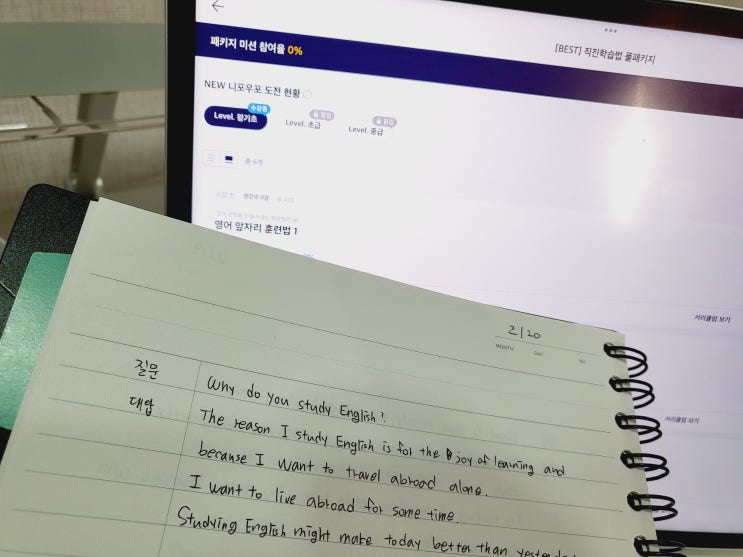 [BEST] 직진학습법 풀패키지
패키지 미션 참여율 0%
NEW 니포우포 도전 현황
수강중
Level. 왕기초
잠김
Level. 초급
잠김
Level. 중급
총 6개
수강 전
영어 앞자리 훈련법 1
커리큘럼 보기
커리큘럼 보기
2/20
MONTH DAY NO
질문 Why do you study English?
대답 The reason I study English is for the joy of learning and
because I want to travel abroad alone.
I want to live abroad for some time.
Studying English might make today better than